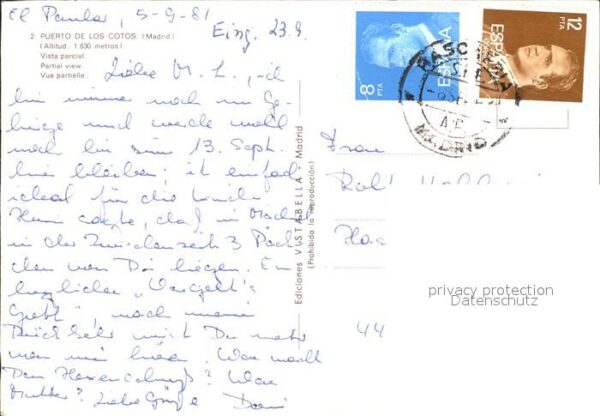 El Paular, 5-9-81
Eing. 23.9.
2. PUERTO DE LOS COTOS. (Madrid)
(Altitud: 1.830 metros)
Vista parcial.
Partial view.
Vue partielle.
Liebe M. L., ich
bin immer noch im Ge-
birge und werde wohl
noch bis zum 13. Sept.
hier bleiben; ist einfach
ideal für die Kinder.
Hans sagte, daß in Madrid
in der Zwischenzeit 3 Päck-
chen von Dir liegen. Ein
herzliches "Vergelt's
Gott", nach meiner
Rückkehr wirst Du mehr
von mir hören. Was macht
Dein Hexenschuß? Was
Mutter? Liebe Grüße
Ediciones VISTABELLA - Madrid
(Prohibida la reproducción)
8 PTA
ESPAÑA
12 PTA
ESPAÑA
RASCAFRIA
MADRID
Frau
privacy protection
Datenschutz
44